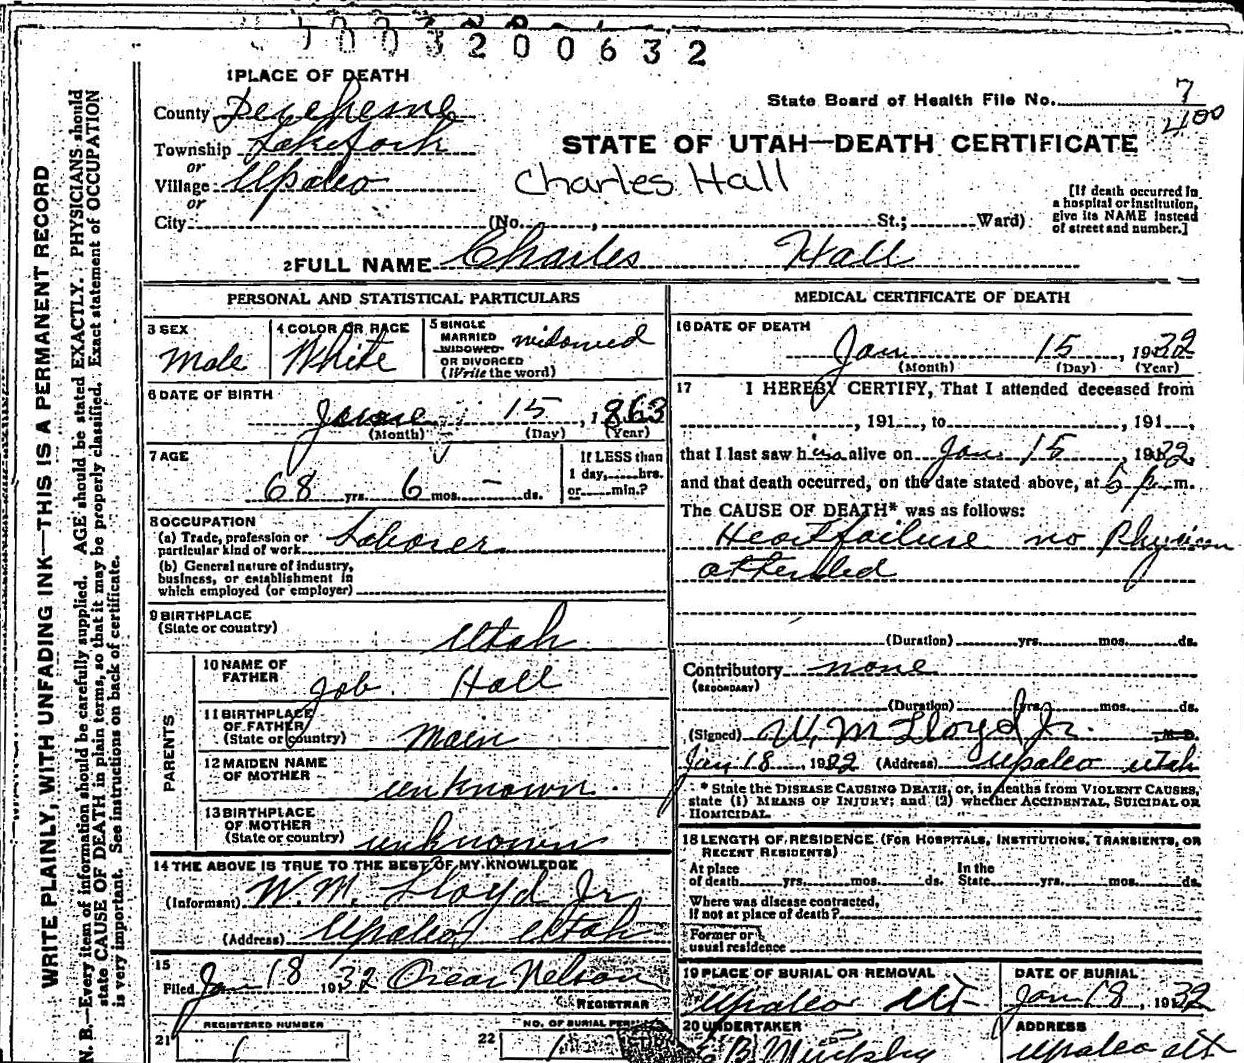 1003200632
1 PLACE OF DEATH
County Duchesne
State Board of Health File No. 7
400
Township Lakefork
or
Village Upalco
or
STATE OF UTAH—DEATH CERTIFICATE
Charles Hall
[If death occurred in
a hospital or institution,
give its NAME instead
of street and number.]
City (No. , St.; Ward)
2 FULL NAME Charles Hall
PERSONAL AND STATISTICAL PARTICULARS
3 SEX
Male
4 COLOR OR RACE
White
5 SINGLE
MARRIED
WIDOWED
OR DIVORCED
(Write the word)
widowed
6 DATE OF BIRTH
June 15, 1863
(Month) (Day) (Year)
7 AGE
68 yrs. 6 mos. – ds.
If LESS than
1 day, hrs.
or min.?
8 OCCUPATION
(a) Trade, profession or
particular kind of work Laborer
(b) General nature of industry,
business, or establishment in
which employed (or employer)
9 BIRTHPLACE
(State or country) Utah
PARENTS
10 NAME OF
FATHER Job Hall
11 BIRTHPLACE
OF FATHER
(State or country) Main
12 MAIDEN NAME
OF MOTHER unknown
13 BIRTHPLACE
OF MOTHER
(State or country) unknown
14 THE ABOVE IS TRUE TO THE BEST OF MY KNOWLEDGE
(Informant) W. M. Lloyd Jr
(Address) Upalco Utah
15
Filed Jan 18 1932 Oscar Nelson
REGISTRAR
REGISTERED NUMBER
21 1
NO. OF BURIAL
22 1
MEDICAL CERTIFICATE OF DEATH
16 DATE OF DEATH
Jan 15, 1932
(Month) (Day) (Year)
17 I HEREBY CERTIFY, That I attended deceased from
, 191 , to , 191 ,
that I last saw him alive on Jan 15, 1932,
and that death occurred, on the date stated above, at 5 p.m.
The CAUSE OF DEATH* was as follows:
Heart failure no Physician
attended
(Duration) yrs. mos. ds.
Contributory none
(SECONDARY)
(Duration) yrs. mos. ds.
(Signed) W. M Lloyd Jr. M.D.
Jan 18, 1932 (Address) Upalco Utah
* State the DISEASE CAUSING DEATH, or, in deaths from VIOLENT CAUSES,
state (1) MEANS OF INJURY; and (2) whether ACCIDENTAL, SUICIDAL OR
HOMICIDAL.
18 LENGTH OF RESIDENCE (FOR HOSPITALS, INSTITUTIONS, TRANSIENTS, OR
RECENT RESIDENTS)
At place
of death yrs. mos. ds.
In the
State yrs. mos. ds.
Where was disease contracted,
if not at place of death?
Former or
usual residence
19 PLACE OF BURIAL OR REMOVAL
Upalco Ut
DATE OF BURIAL
Jan 18, 1932
20 UNDERTAKER
ADDRESS
Upalco Ut
WRITE PLAINLY, WITH UNFADING INK—THIS IS A PERMANENT RECORD
N. B.—Every item of information should be carefully supplied. AGE should be stated EXACTLY. PHYSICIANS should
state CAUSE OF DEATH in plain terms, so that it may be properly classified. Exact statement of OCCUPATION
is very important. See instructions on back of certificate.